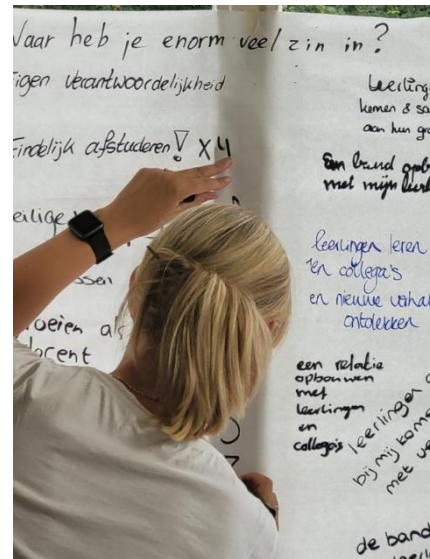 Waar heb je enorm veel zin in?
Eigen verantwoordelijkheid
Eindelijk afstuderen! x4
eilige
ssen
oeien als
docent
Leerling
komen & sa
aan hun
Een band opb
met mijn
leerlingen leren
en collega's
en nieuwe verhal
ontdekken
een relatie
opbouwen
met
leerlingen
en
collega's
leerlingen
bij mij kome
met
de band